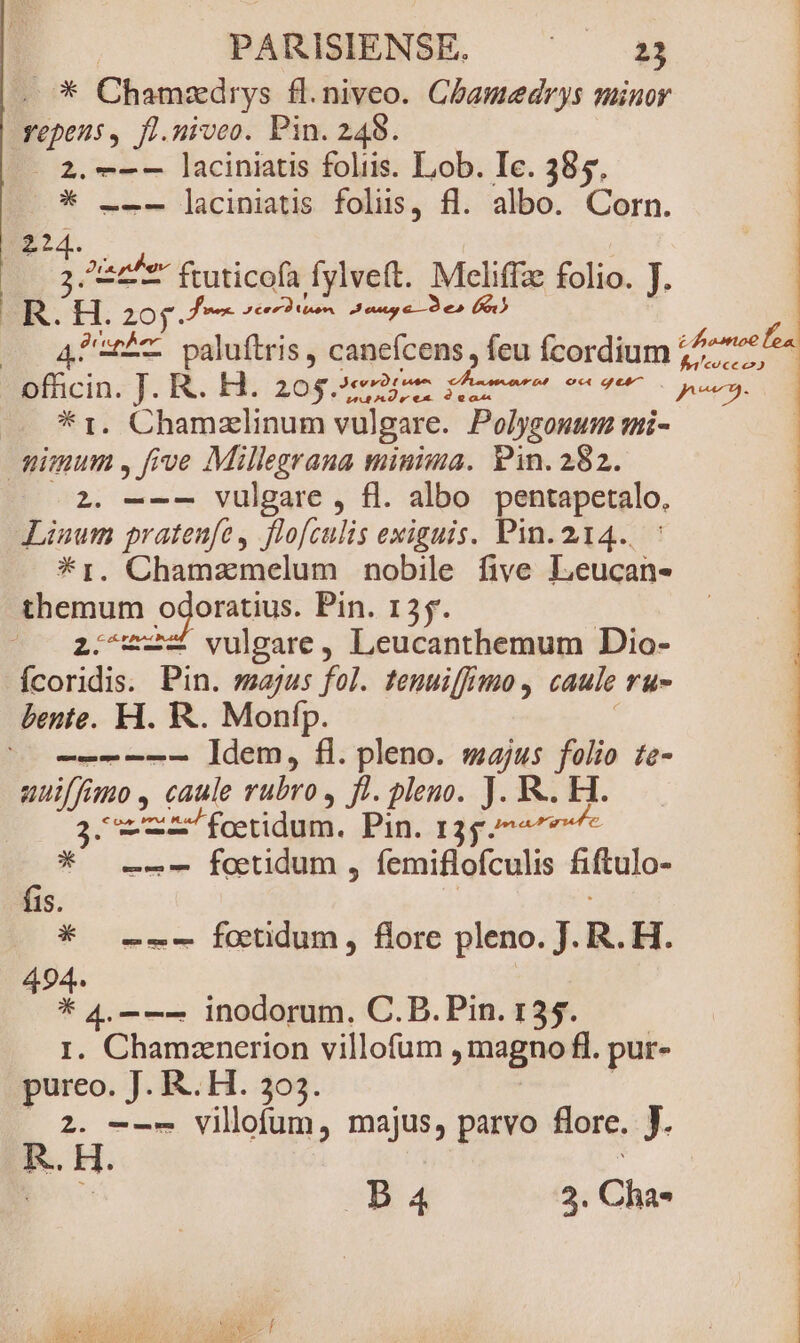 PARISIENSE. 23
* Chamædrys fl. niveo. Chamædrys minor
repens, fl. niveo. Pin. 248.
2. --- laciniatis foliis. Lob. Ic. 385.
* --- laciniatis foliis, fl. albo. Corn.
224.
3. --- ſruticoſa ſylveſt. Meliſſæ folio. J.
R. H. 205. Sauge des bois
4. --- paluſtris, caneſcens, ſeu ſcordium
officin. J. R. H. 205.
*1. Chamælinum vulgare. Polygonum mi-
nimum, ſive Millegrana minima. Pin. 282.
2. --- vulgare, fl. albo pentapetalo,
Linum pratenſe, floſculis exiguis. Pin. 214.
*1. Chamæmelum nobile ſive Leucan-
themum odoratius. Pin. 135.
2. --- vulgare, Leucanthemum Dio-
ſcoridis. Pin. majus fol. tenuiſſimo, caule ru-
bente. H. R. Monſp.
------ Idem, fl. pleno. majus folio te-
nuiſſimo, caule rubro, fl. pleno. J. R. H.
3. --- fœtidum. Pin. 135. maroute
* --- fœtidum, ſemifloſculis fiſtulo-
ſis.
* --- fœtidum, flore pleno. J. R. H.
494.
* 4. --- inodorum. C. B. Pin. 135.
1. Chamænerion villoſum, magno fl. pur-
pureo. J. R. H. 303.
2. --- villoſum, majus, parvo flore. J.
R. H.
B 4 3. Cha-